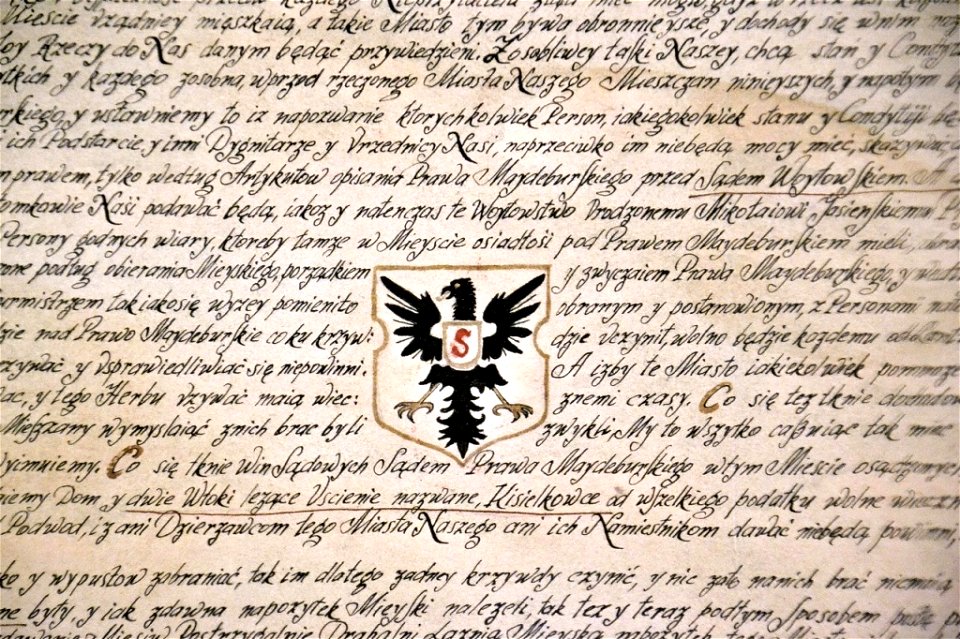 Mieście vrządniey mięszkaią, a takie Miasto tym bywa obronnieysze, y dochody się wnim
Rzeczy do Nas danym będąć przywiedzieni. Zosobliwey łaski Naszey, chcą stań y
y kazdego zosobna, wprzod rzeczonego Miasta Naszego Mieszczan ninieyszych, y napotym
y vstawniemy to iz napozwanie ktorychkolwiek Person, iakiegokolwiek stanu y Condytiji
ich Podstarcie, y inni Dygnitarze y Vrzednicy Nasi, naprzeciwko im niebędą mocy mieć, skazywać
prawem, tylko według Artykułow opisania Prawa Maydeburskiego przed Sądem Woytowskiem. A
Nasi podawać będą, iakoz y natenczas te Woytowstwo Vrodzonemu Mikołaiowi Josienskiemu
Persony godnych wiary, ktoreby tamze w Mieyscie osiadłosi pod Prawem Maydeburskiem mieli,
podług obierania Mieyskiego, porządkiem y zwyczaiem Prawa Maydeburskiego, y
tak iako się wyzey pomieniło obronym y postanowionym, z Personami
nad Prawo Maydeburskie co ku krzyw: dzie vczynił, wolno będzie kazdemu
y vsprawiedliwiać się niepowinni. A izby te Miasto iakiekolwiek
y tego Herbu vzywać maią wiec: znemi czasy. Co się tez tknie
S
Mieszany wymyslaiąć znich brac byli zwykli, My to wszytko caßwiąc tak
Co się tknie Win Sądowych Sądem Prawa Maydeburskiego wtym Mieście
Dom, y dwie Włoki lezące Vscienie nazwane, Kisielkowce od wszelkiego podatku wolne
Podwod, i z ani Dzierzawcom tego Miasta Naszego ani ich Namiestnikom dawać niebędą powinni,
y wypustow zabraniać, tak im dlatego zadney krzywdy czynić, y nic zato nanich brać
były, y iak zdawna napozytek Mieyski nalezeli, tak tez y teraz podłym, Sposobem
Postrzygalnie Drahalni Łaznia Mieyska napozytek